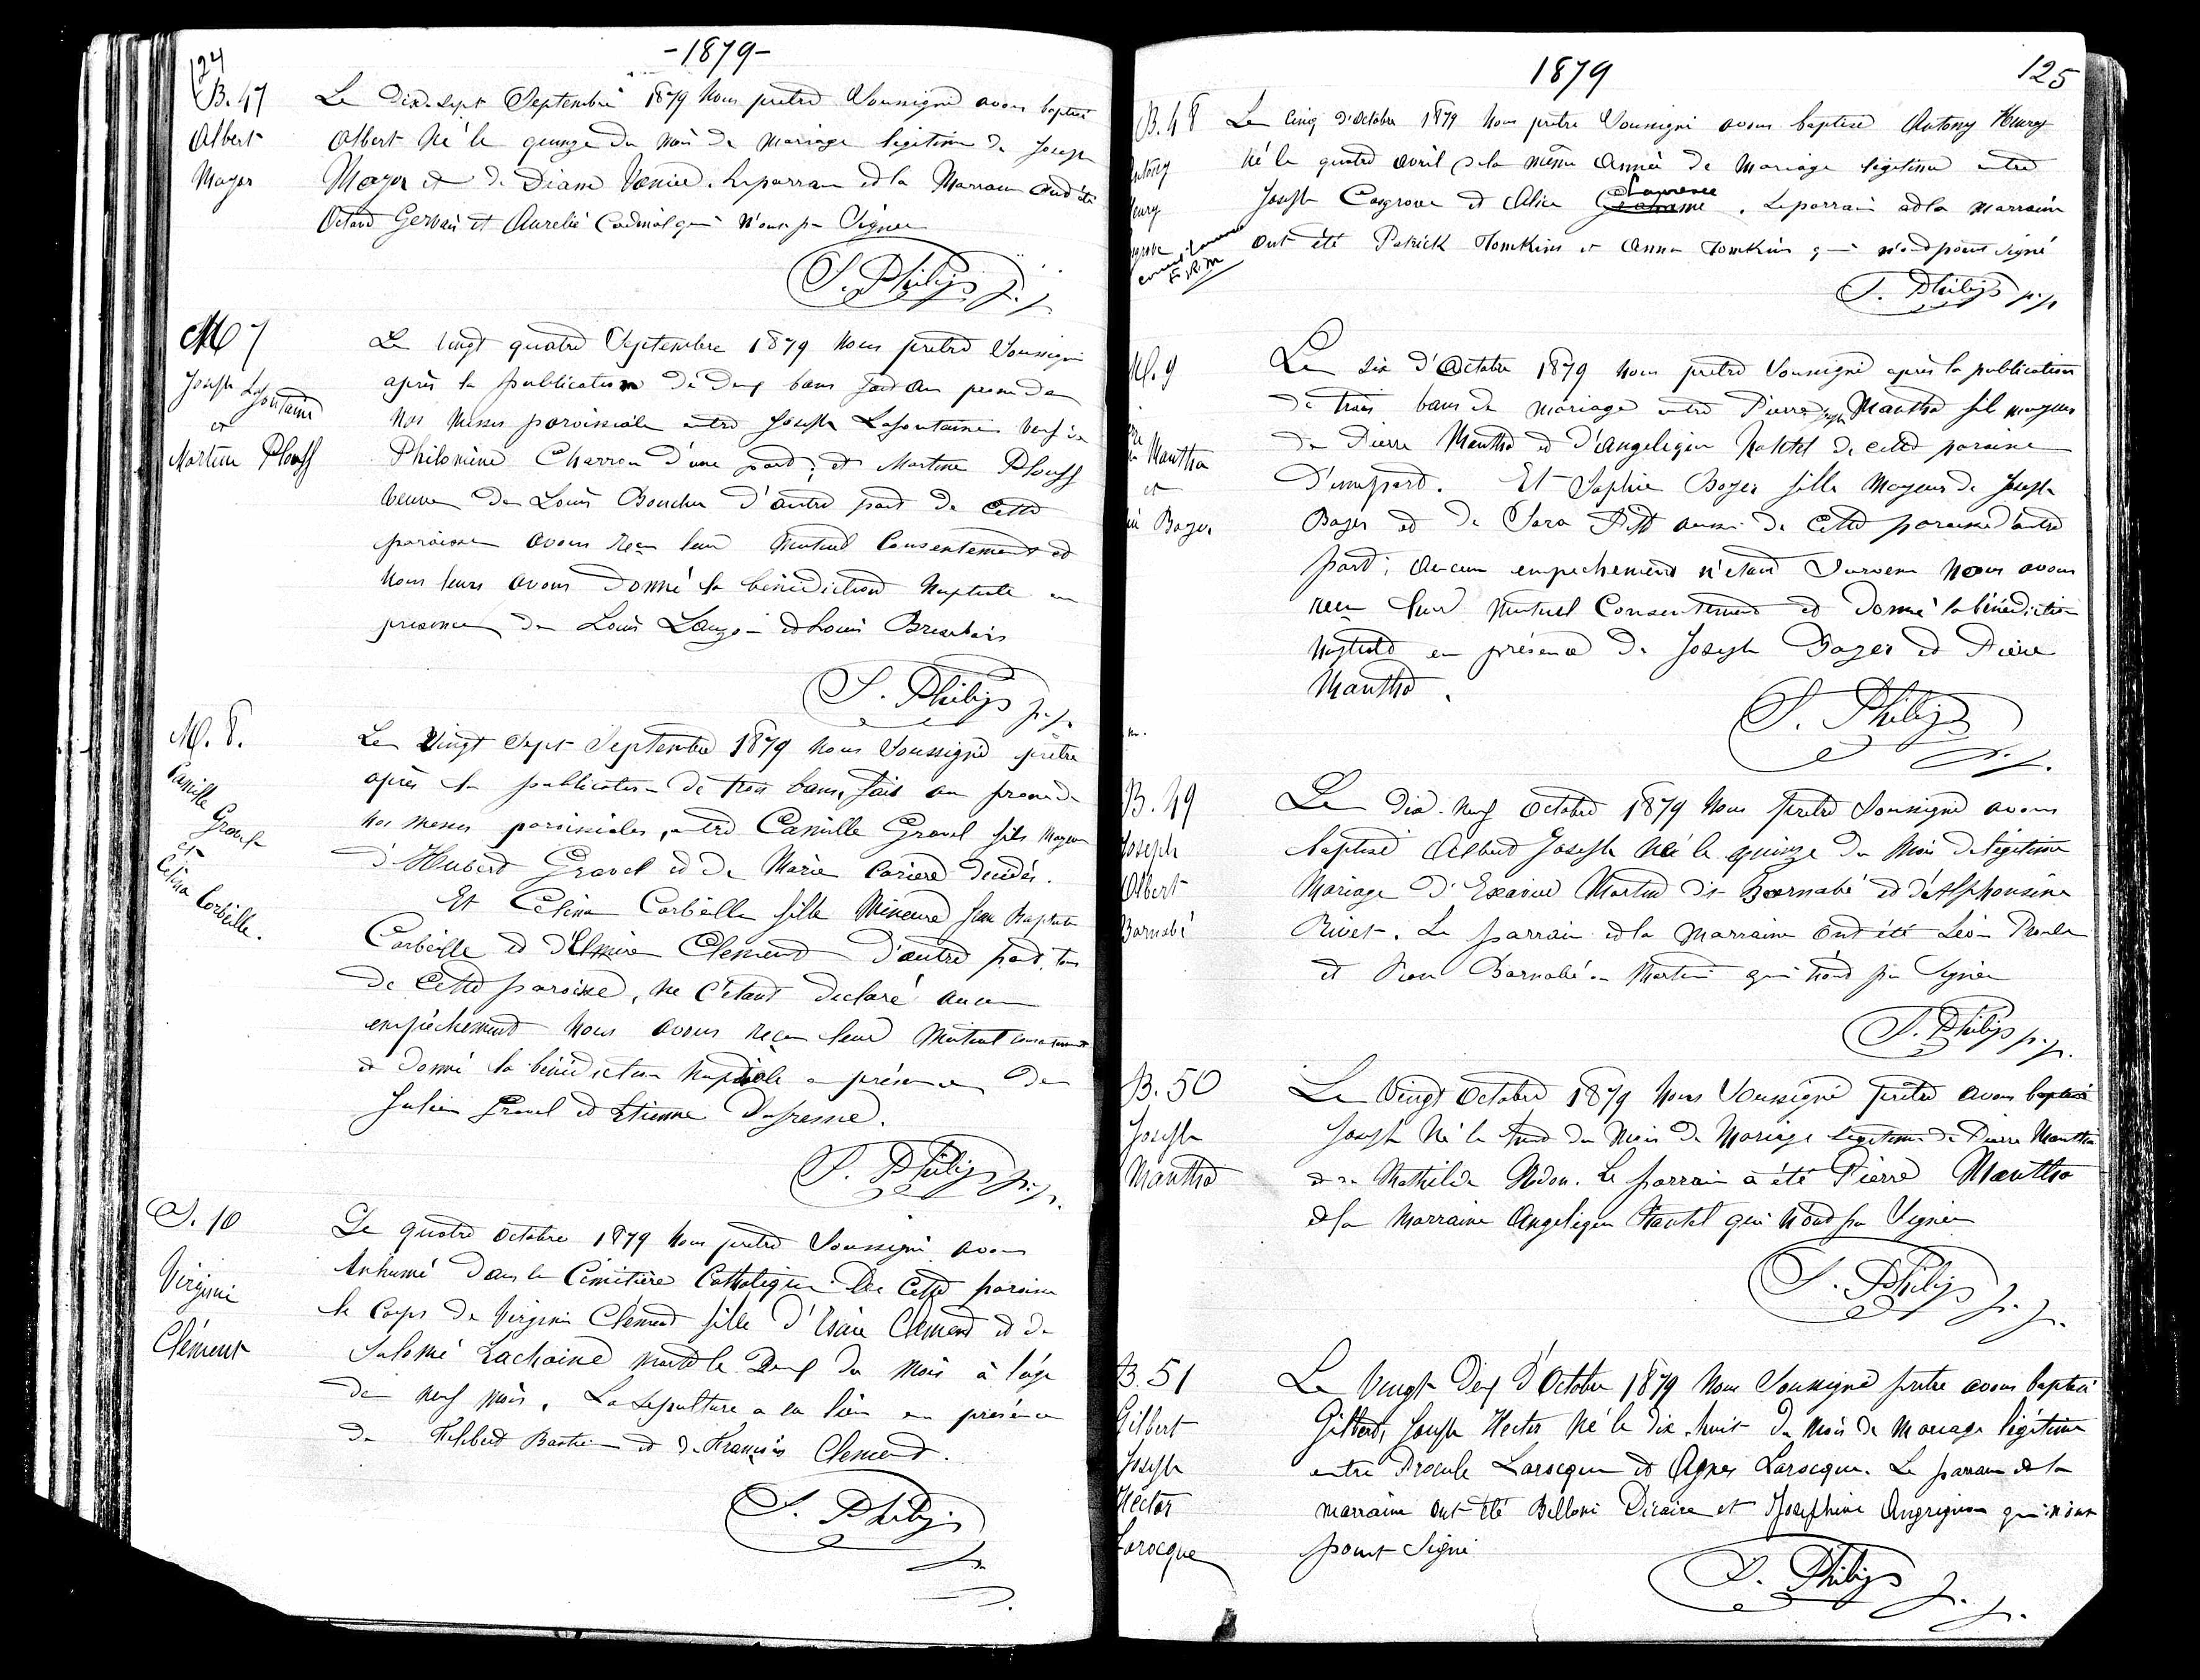 124
-1879-
B. 47
Albert
Mayer
Le Dix-sept Septembre 1879 Nous prêtre Soussigné avons baptisé
Albert Né le quinze du mois de mariage légitime de Joseph
Mayer et de Diane Vanier. Le parrain et la Marraine ont été
Octave Gervais et Aurelie Cardinal qui n'ont pu Signer
S. Philips p.p.
M 7
Joseph Lafontaine
et
Martine Plouff
Le vingt quatre Septembre 1879 Nous prêtre Soussigné
après la publication de deux bans fait au prone de
nos messes paroissiale entre Joseph Lafontaine veuf de
Philomène Charron d'une part; et Martine Plouff
veuve de Louis Boucher d'autre part de cette
paroisse avons reçu leur Mutuel Consentement et
Nous leurs avons Donné la bénédiction Nuptiale en
presence de Louis Lauzon et Louis
S. Philips p.p.
M. 8.
Camille Gravel
et
Celina Corbeille.
Le Vingt Sept Septembre 1879 Nous Soussigné prêtre
après la publication de trois bans, fait au prone de
nos messes paroissiales, entre Camille Gravel fils Mageur
d'Hubert Gravel et de Marie Cariere decédés.
Et Celina Corbeille fille Mineure Jean Baptiste
Corbeille et d'Elmire Clement d'autre part, tous
de Cette paroisse, ne c'étant declaré aucun
empêchement Nous avons reçu leur Mutuel consentement
et Donné la bénédiction Nuptiale en présence de
Julien Gravel et Etienne Dufresne.
S. Philips p.p.
S. 10
Virginie
Clément
Le quatre Octobre 1879 Nous prêtre Soussigné avons
Inhumé Dans le Cimitière Catholique De Cette paroisse
le Corps de Virginie Clément fille D'Isaïe Clement et de
Salomé Lachaine morte le Deux du Mois à l'âge
de neuf mois. La sepulture a eu lieu en présence
de Philbert Bastien et de François Clement.
S. Philips p.p.
1879
125
B. 48
Antony
Henry
Le Cinq d'Octobre 1879 Nous prêtre Soussigné avons baptisé Antony Henry
Né le quatre avril de la même Année de Mariage légitime entre
Joseph Cosgrove et Alice Lawrence. Le parrain et la marraine
ont été Patrick Tomkins et Anna Tomkins qui n'ont point signé
S. Philips p.p.
M. 9
Mantha
et
Boyer
Le Six d'Octobre 1879 Nous prêtre Soussigné après la publication
de trois bans de mariage entre Pierre Joseph Mantha fils mageur
de Pierre Mantha et d'Angelique de cette paroisse
D'une part. Et Sophie Boyer fille Mageure de Joseph
Boyer et de Sara aussi de Cette paroisse d'autre
part; Aucun empechement n'étant Survenu Nous avons
reçu leur Mutuel Consentement et Donné la bénédiction
Nuptiale en présence de Joseph Boyer et Pierre
Mantha.
S. Philips p.p.
B. 49
Joseph
Albert
Barnabé
Le Dix-neuf Octobre 1879 Nous prêtre Soussigné avons
baptisé Albert Joseph Né le quinze du Mois de légitime
Mariage D'Exavier Martin dit Barnabé et d'Alphonsine
Rivet. Le parrain et la marraine ont été Léon
et Barnabé Martin qui n'ont pu Signer
S. Philips p.p.
B. 50
Joseph
Mantha
Le Vingt Octobre 1879 Nous Soussigné prêtre avons baptisé
Joseph Né le du Mois de Mariage legitime de Pierre Mantha
et de Mathilde Nadon. Le parrain a été Pierre Mantha
et la Marraine Angelique qui n'ont pu Signer
S. Philips p.p.
B. 51
Gilbert
Joseph
Hector
Larocque
Le Vingt Deux d'Octobre 1879 Nous Soussigné prêtre avons baptisé
Gilbert, Joseph Hector Né le dix-huit du Mois de Mariage légitime
entre Procule Larocque et Agnes Larocque. Le parrain et la
marraine ont été Belloni Dicaire et Josephine Angrignon qui n'ont
point Signé
S. Philips p.p.